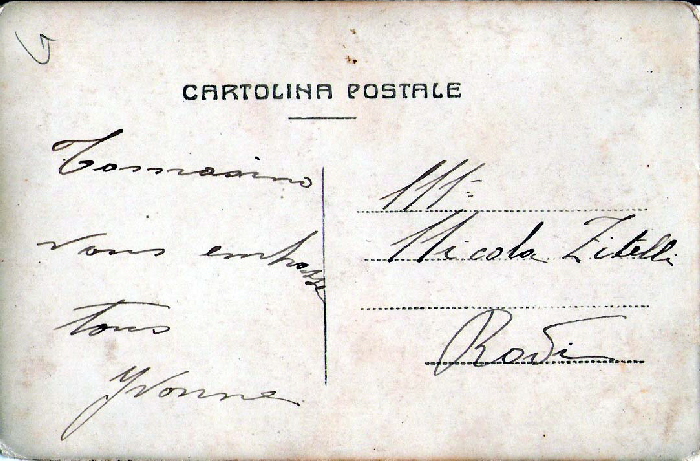 CARTOLINA POSTALE
Tommasino
vous embrasse
tous
Yvonne
Mr
Nicola Zitelli
Rodi